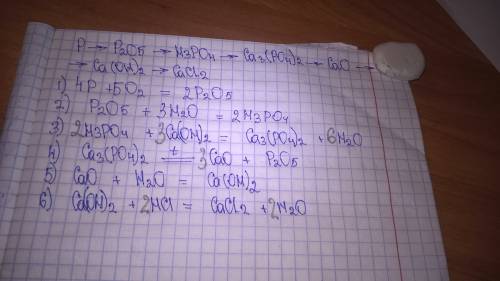 P → P2O5 → H3PO4 → Ca3(PO4)2 → CaO →
→ Ca(OH)2 → CaCl2
1) 4P + 5O2 = 2P2O5
2) P2O5 + 3H2O = 2H3PO4
3) 2H3PO4 + 3Ca(OH)2 = Ca3(PO4)2 + 6H2O
4) Ca3(PO4)2 =t= 3CaO + P2O5
5) CaO + H2O = Ca(OH)2
6) Ca(OH)2 + 2HCl = CaCl2 + 2H2O